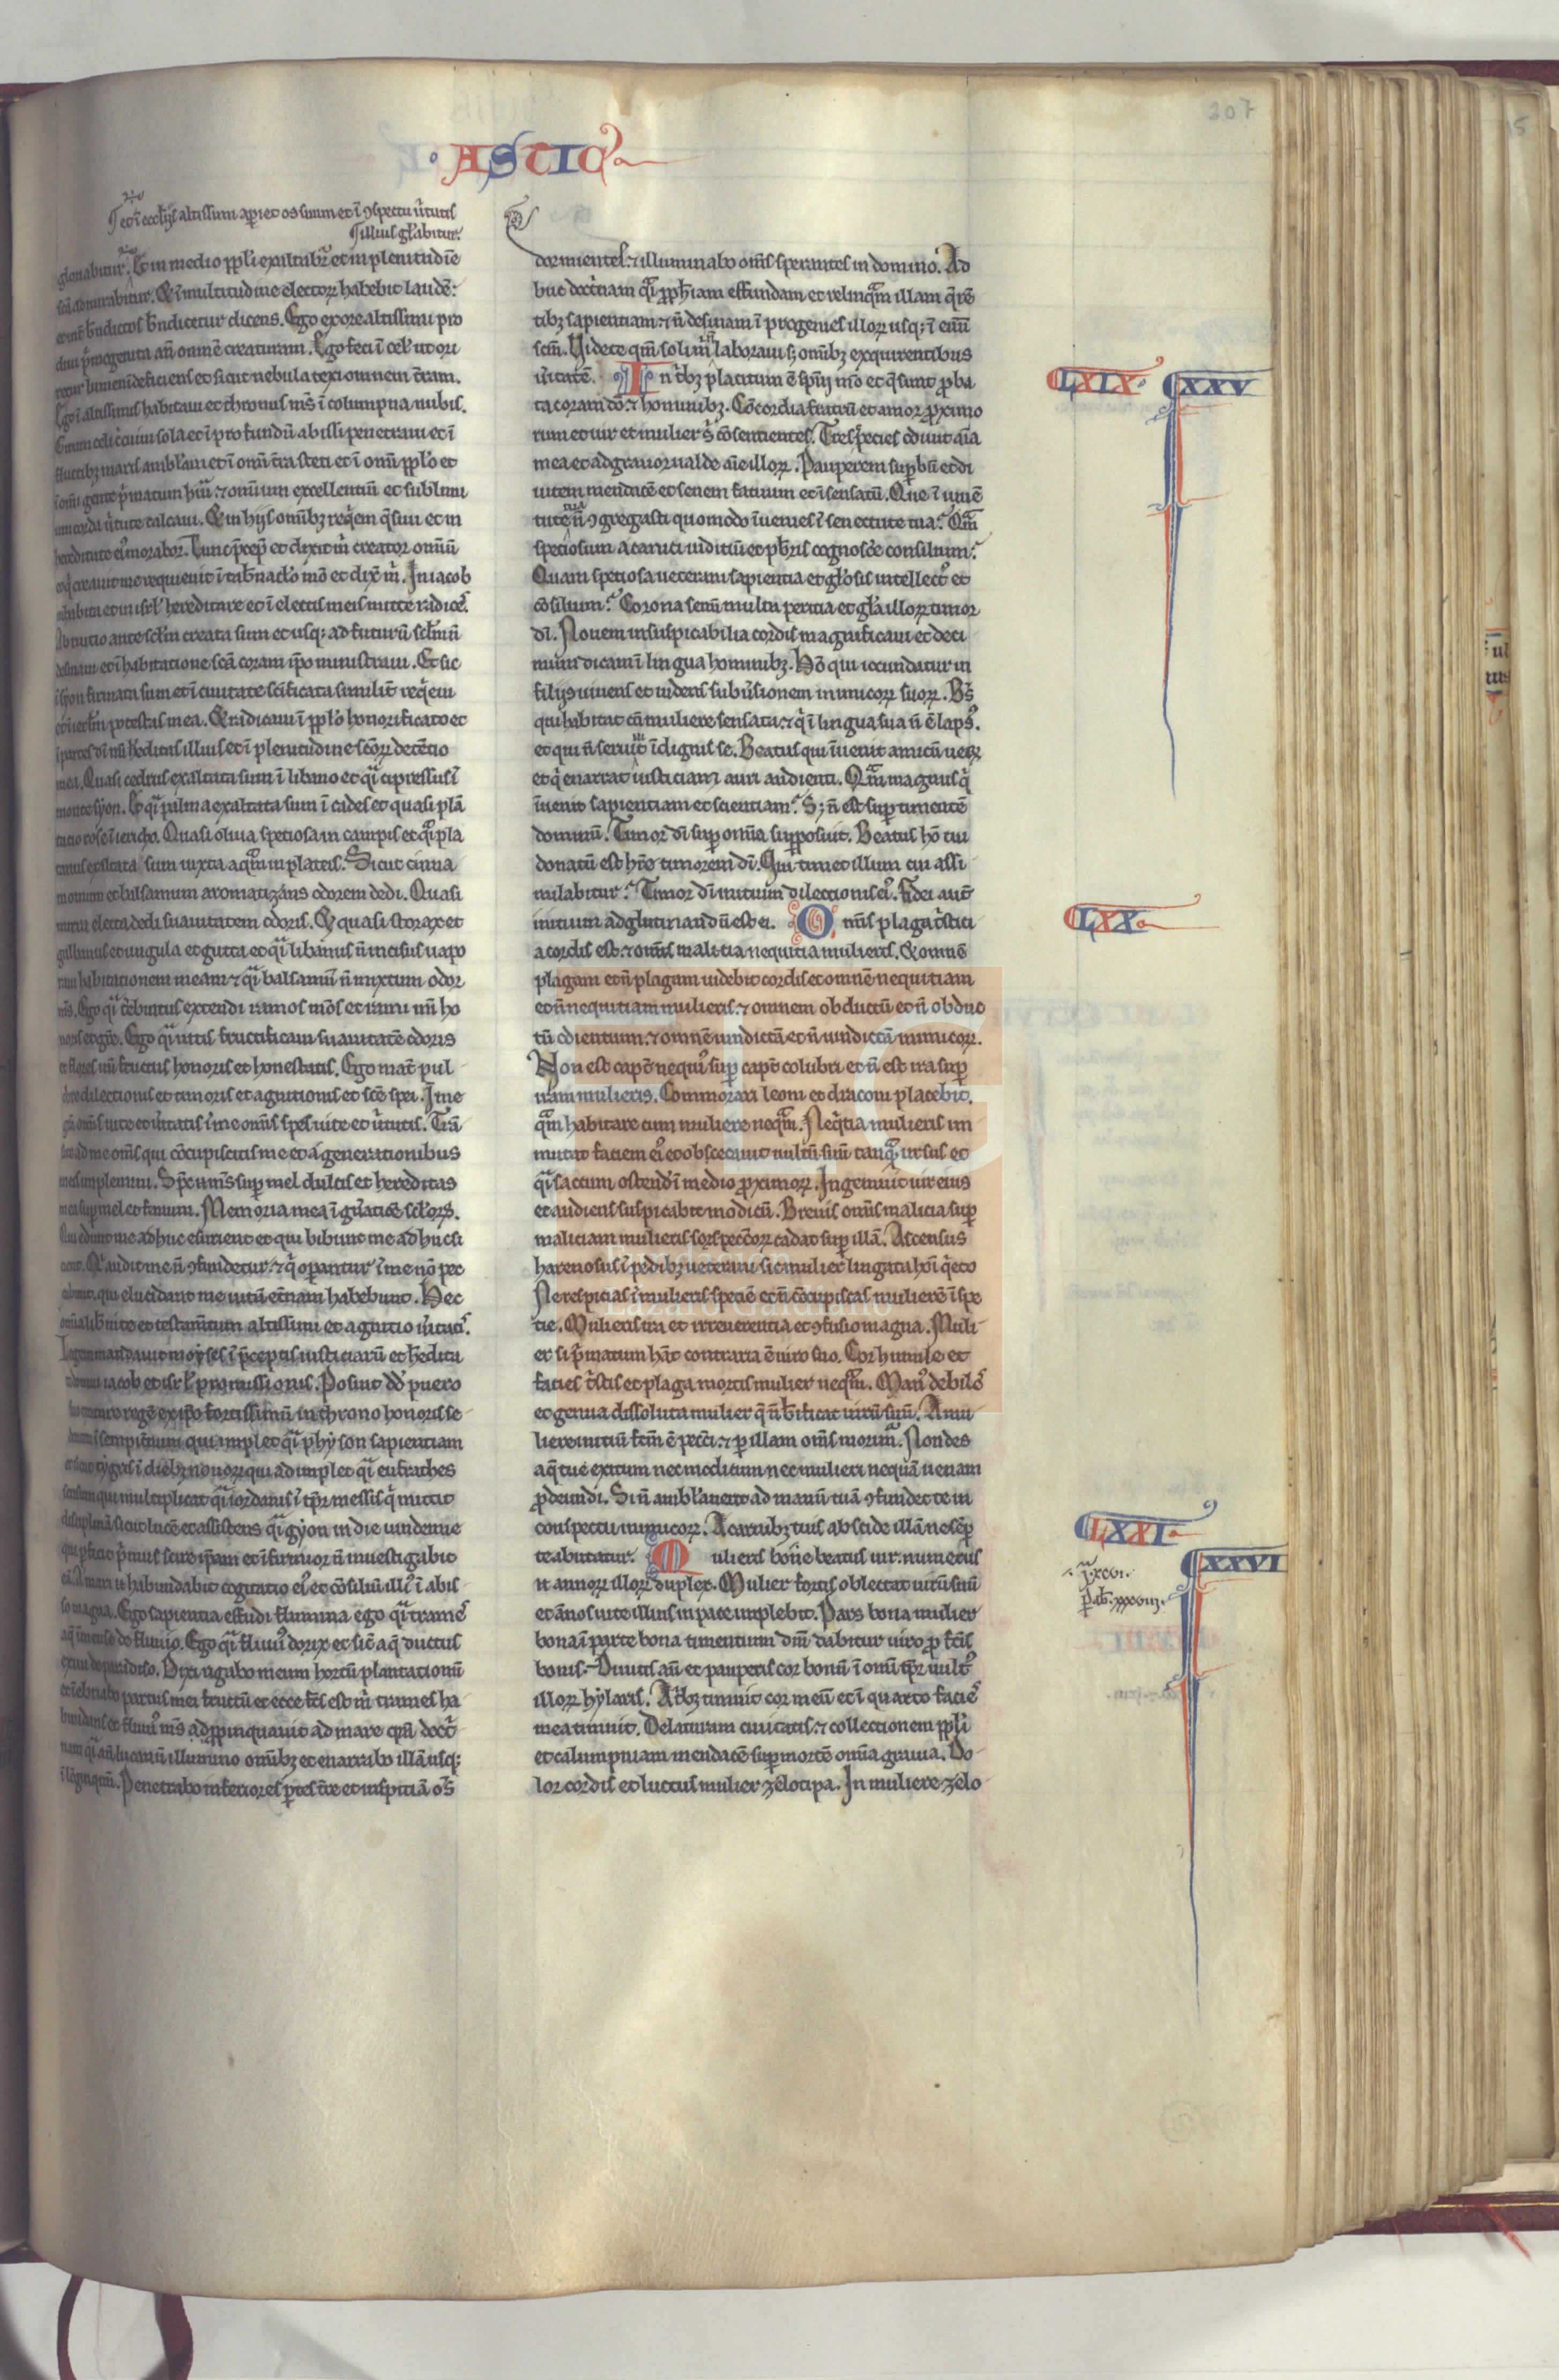 207
· ASTIC'
⁊ et ī eccl'iis altissimi aperiet os suum et ī ɔspectu ūtutis
illius gl'abitur.
gloriabitur. Et in medio ppl'i exaltabr̄ et in plenitudīe
scā admirabitur. Et ī multitudine electoꝝ habebit laudē:
et int̄ b̄ndictos b̄ndicetur dicens. Ego ex ore altissimi pro
diui p̄mogenita an̄ omnē creaturam. Ego feci ī cel' ut ori
retur lumen īdeficiens et sicut nebula texi omnem t̄ram.
Ego ī altissimis habitaui et thronus m̄s ī columpna nubis.
Girum celi c̄cuiui sola et ī profundū abissi penetraui et ī
fluctibꝫ maris ambl'aui et ī omi t̄ra steti et ī omi ppl'o et
ī omi gente p̄matum hui ⁊ omium excellentiū et sublimi
um corda ūtute calcaui. Et in hiis omibꝫ req̄em q̄siui et in
hereditate ei' morabor. Tunc p̄cep̄ et dixit m̄ creator omiū
et q̄ creauit me requieuit ī tab̄nac'lo mō et dix̄ m̄. In iacob
inhabita et in isrl' hereditare et ī electis meis mitte radices.
Ab initio ante sec'la creata sum et usqꝫ ad futurū sec'lm n̄
desinam et ī habitatione scā coram ip̄o ministraui. Et sic
ī syon firmata sum et ī ciuitate sc̄ificata similit̄ req̄eui
et ī ierl'm potestas mea. Et radicaui ī ppl'o honorificato et
ī partes dī mi h̄editas illius et ī plenitudine sc̄oꝝ detētio
mea. Quasi cedrus exaltata sum ī libano et q̄i cipressus ī
monte syon. Et q̄i palma exaltata sum ī cades et quasi plā
tatio rose ī iericho. Quasi oliua speciosa in campis et q̄i pla
tanus exaltata sum iuxta aq̄m in plateis. Sicut cinna
momum et balsamum aromatizans odorem dedi. Quasi
mirra electa dedi suauitatem odoris. Et quasi storax et
galbanus et ungula et gutta et q̄i libanus n̄ incisus uapo
raui habitationem meam ⁊ q̄i balsamū n̄ mixtum odor
m̄s. Ego q̄i t̄ebintus extendi ramos mōs et rami mi ho
noris et gr̄e. Ego q̄i uitis fructificaui suauitatē odoris
et flores mi fructus honoris et honestatis. Ego mat̄ pul
chre dilectionis et timoris et agnitionis et scē spei. In me
gr̄a om̄is uite et ūitatis ī me om̄is spes uite et ūtutis. Trā
site ad me om̄s qui cōcupiscitis me et a generationibus
meis implemini. Sp̄c eni m̄s sup mel dulcis et hereditas
mea sup mel et fauum. Memoria mea ī gn̄atiōe sec'loꝝ.
Qui edunt me adhuc esurient et qui bibunt me adhuc si
tient. Q̄i audit me n̄ ɔfundetur. ⁊ q̄ operantur ī me nō pec
cabunt. qui elucidant me uitā et̄nam habebunt. Hec
om̄ia lib̄ uite et testam̄tum altissimi et agnitio ūitatis.
Legem mandauit moyses ī p̄ceptis iusticiarū et h̄edita
domui iacob et isrl' promissionis. Posuit dd' puero
suo excitare regē ex ip̄o fortissimū in throno honoris se
dentem ī sempit̄num qui implet q̄i physon sapientiam
et sicut tygris ī diebꝫ nouoꝝ qui adimplet q̄i eufrathes
sensum qui multiplicat q̄i iordanis ī tp̄r messis q̄ mittit
disciplinā sicut lucē et assistens q̄i gyon in die uindemie
qui p̄ficit p̄mus scire ip̄am et ī firmior n̄ inuestigabit
eā. A mari n̄ habundabit cogitatio ei' et cōsiliū illi' ī abis
so magna. Ego sapientia effudi flumina ego q̄i trames
aq̄ īmense de fluuio. Ego q̄i fluui' dorix et sic̄ aq̄ ductus
exiui de paradiso. Dixi rigabo meum hortū plantationū
et īebriabo partus mei fructū et ecce fc̄s est m̄ trames ha
bundans et fluui' m̄s adp̄pinquauit ad mare qm̄ doct̄
nam q̄i an̄lucanū illumino omibꝫ et enarrabo illā usqꝫ
ī lōginqm̄. Penetrabo inferiores p̄tes t̄re et inspiciā om̄s
dormientes ⁊ illuminabo om̄s sperantes in domino. Ad
huc doct̄nam q̄i pph̄iam effundam et relinq̄m illam q̄rē
tibꝫ sapientiam ⁊ n̄ desinam ī progenies illoꝝ usqꝫ ī euū
scm̄. Videte qm̄ n̄ soli m̄ laboraui sꝫ omibꝫ exquirentibus
ūitatē. In t̄bꝫ placitum ē spūi mō et q̄ sunt proba
ta coram dō ⁊ hominibꝫ. Cōcordia fratrū et amor proximo
rum et uir et mulier s̄ cōsentientes. Tres species odiuit aīa
mea et adgrauor ualde aīe illoꝝ. Pauperem supbū et di
uitem mendacē et senem fatuum et īsensatū. Que ī iuuē
tute tua n̄ ɔgregasti quomodo īuenies ī senectute tua? Qm̄
speciosum a canici iuditiū et pb̄ris cognosce consilium?
Quam speciosa ueterani sapientia et gl'osis intellect' et
cōsilium? Corona senū multa peritia et gl'a illoꝝ timor
dī. Nouem insuspicabilia cordis magnificaui et deci
mum dicam ī lingua hominibꝫ. Hō qui iocundatur in
filiis uiuens et uidens subūsionem inimicoꝝ suoꝝ. Bs̄
qui habitat cū muliere sensata ⁊ q̄ ī lingua sua n̄ ē laps'.
et qui n̄ seruiuit īdignis se. Beatus qui īuenit amicū ueꝝ
et q̄ enarrat iusticiam auri audienti. Qm̄ magnus q̄
īuenit sapientiam et scientiam? Sꝫ n̄ est sup timentē
dominū. Timor dī sup omia supposuit. Beatus hō cui
donatū est hr̄e timorem dī. Qui timet illum cui assi
milabitur? Timor dī initium dilectionis ei'. fidei aut̄
initium adglutinandū est ei. Om̄is plaga t̄stici
a cordis est ⁊ om̄is malitia nequitia mulieris. Et omnē
plagam et n̄ plagam uidebit cordis et omnē nequitiam
et n̄ nequitiam mulieris. ⁊ omnem obductū et n̄ obduc
tū odientium. ⁊ omnē uindictā et n̄ uindictā inimicoꝝ.
Non est capd̄ nequi' sup capd̄ colubri et n̄ est ira sup
iram mulieris. Commorari leoni et draconi placebit.
q̄m habitare cum muliere neq̄m. Neq̄tia mulieris im
mutat faciem ei' et obscecauit uultū suū tanq̄ ursus et
q̄i saccum ostend̄ ī medio proximoꝝ. Ingemuit uir eius
et audiens suspirabit modicū. Breuis om̄is malicia sup
maliciam mulieris sors peccōꝝ cadat sup illā. Ascensus
harenosus ī pedibꝫ ueterani sic mulier lingata hōi q̄eto
Ne respicias ī mulieris speciē et n̄ cōcupiscas mulierē ī spe
cie. Mulieris ira et irreuerentia et ɔfusio magna. Muli
er si p̄matum hāt contraria ē uiro suo. Cor humile et
facies t̄stis et plaga mortis mulier neq̄m. Man' debiles
et genua dissoluta mulier q̄ n̄ b̄ificat uirū suū. A mu
liere initiū fc̄m ē pecci ⁊ p illam om̄s morim̄. Non des
aq̄ tue exitum nec modicum nec mulieri nequā ueniam
prodeundi. Si n̄ ambl'auerit ad manū tuā ɔfundet te in
conspectu inimicoꝝ. A carnibꝫ tuis abscide illā ne semp̄
te abutatur. Mulieris bone beatus uir. numerus
n̄ annoꝝ illoꝝ duplex. Mulier fortis oblectat uirū suū
et annos uite illius in pace implebit. Pars bona mulier
bona ī parte bona timentium dm̄ dabitur uiro pro fc̄is
bonis. Diuitis aū et pauperis cor bonū ī omi tp̄r uult'
illoꝝ hylaris. A t̄bꝫ timuit cor meū et ī quarto facies
mea timuit. Delaturam ciuitatis ⁊ collectionem ppl'i
et calumpniam mendacē sup mortē omia grauia. Do
lor cordis et luctus mulier zelotipa. In muliere zelo
LXIX. XXV
LXX
LXXI
XXVI